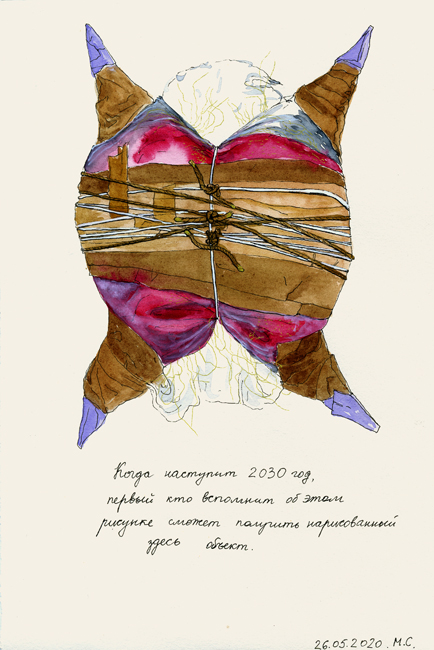 Когда наступит 2030 год,
первый кто вспомнит об этом
рисунке сможет получить нарисованный
здесь объект.
26.05.2020. М.С.